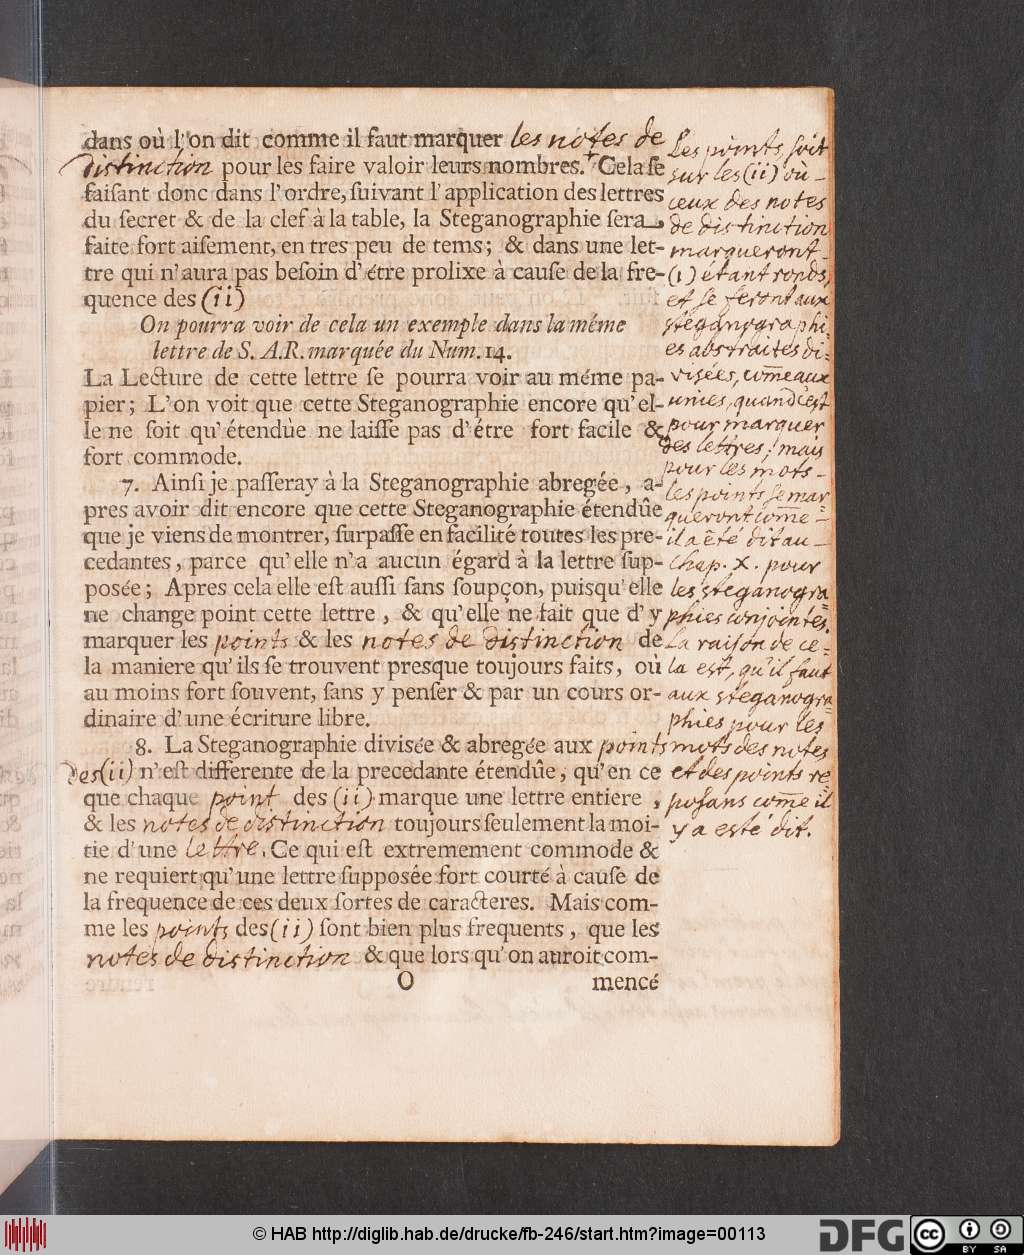 dans où l'on dit comme il faut marquer les notes de
distinction pour les faire valoir leurs nombres.+ Cela ſe
faiſant donc dans l'ordre, ſuivant l'application des lettres
du ſecret & de la clef à la table, la Steganographie ſera,
faite fort aiſement, en tres peu de tems; & dans une let-
tre qui n'aura pas beſoin d'étre prolixe à cauſe de la fre-
quence des (ii)
On pourra voir de cela un exemple dans la méme
lettre de S. A.R. marquée du Num. 14.
La Lecture de cette lettre ſe pourra voir au méme pa-
pier; L'on voit que cette Steganographie encore qu'el-
le ne ſoit qu'étendüe ne laiſſe pas d'étre fort facile &
fort commode.
7. Ainſi je paſſeray à la Steganographie abregée, a-
pres avoir dit encore que cette Steganographie étendûe
que je viens de montrer, ſurpaſſe en facilité toutes les pre-
cedantes, parce qu'elle n'a aucun égard à la lettre ſup-
posée; Apres cela elle eſt auſſi ſans ſoupçon, puisqu'elle
ne change point cette lettre, & qu'elle ne fait que d'y
marquer les points & les notes de distinction de
la maniere qu'ils ſe trouvent presque toujours faits, où
au moins fort ſouvent, ſans y penſer & par un cours or-
dinaire d'une écriture libre.
8. La Steganographie divisée & abregée aux points
des (ii) n'eſt differente de la precedante étendûe, qu'en ce
que chaque point des (ii) marque une lettre entiere,
& les notes de distinction toujours ſeulement la moi-
tie d'une lettre. Ce qui eſt extremement commode &
ne requiert qu'une lettre ſupposée fort courté à cauſe de
la frequence de ces deux ſortes de caracteres. Mais com-
me les points des (ii) ſont bien plus frequents, que les
notes de distinction & que lors qu'on auroit com-
O mencé
Les points, ſoit
sur les (ii) ou
ceux des notes
de distinction
marqueront
(1) étant ronds,
et se feront aux
steganographi-
es abstraites di-
visées, com̄e aux
unies, quand c'est
pour marquer
des lettres; mais
pour les mots
les points se mar
queront com̄e
il a été dit au
Chap. X. pour
les steganogra
phies conjointes.
La raison de ce-
la est, qu'il faut
aux steganogra
phies pour les
mots des notes
et des points re
posans com̄e il
y a esté dit.
© HAB http://diglib.hab.de/drucke/fb-246/start.htm?image=00113
DFG
cc
BY SA